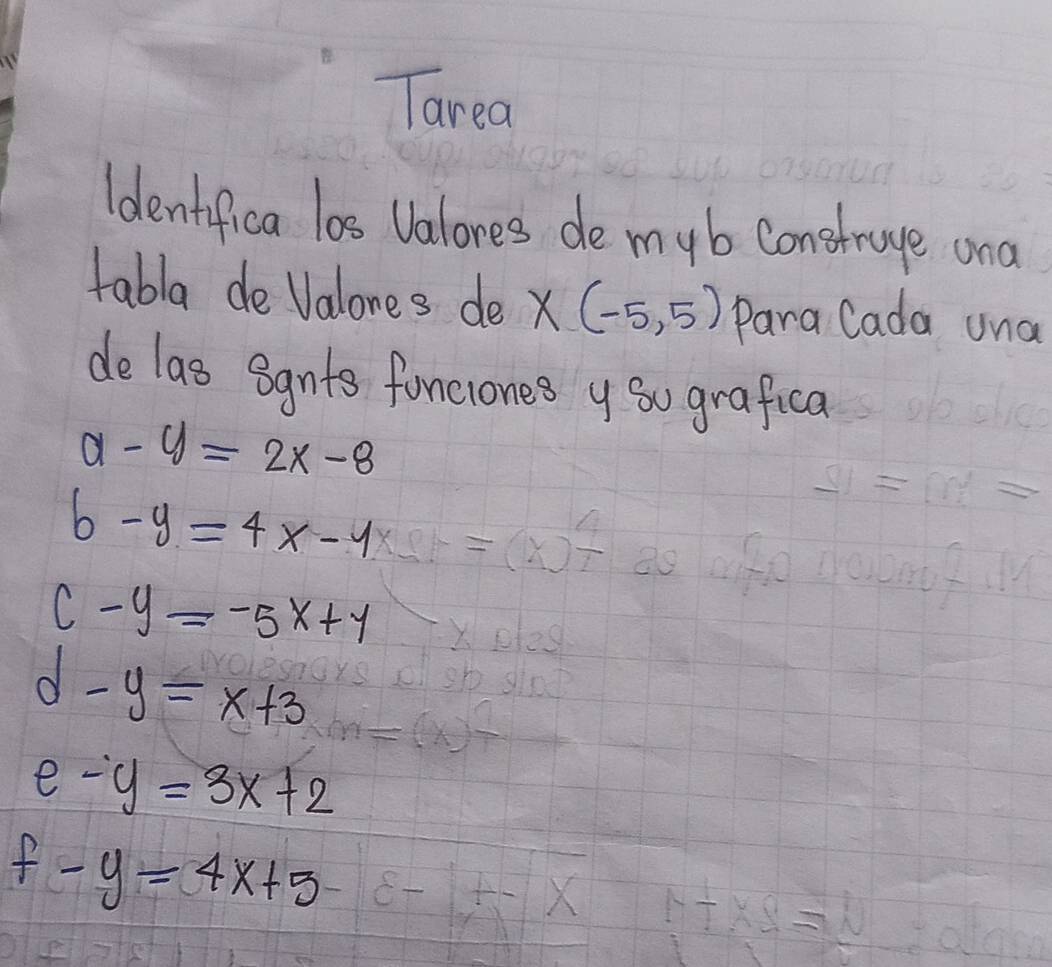 Tarea
Identifica los Valores de m y b Construye una
tabla de Valores de x (-5,5) Para Cada una
de las Sgnts funciones y su grafica
a - y = 2x - 8
b - y = 4x - 4
c - y = -5x + 4
d - y = x + 3
e - y = 3x + 2
f - y = 4x + 5